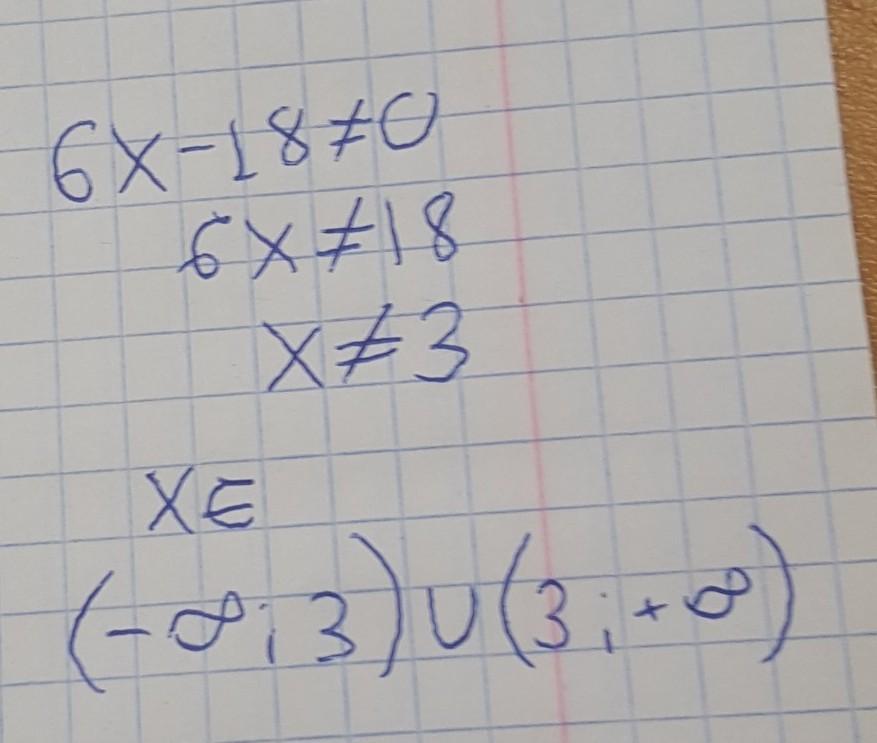 6x-18≠0
6x≠18
x≠3
x∈
(-∞;3)∪(3;+∞)